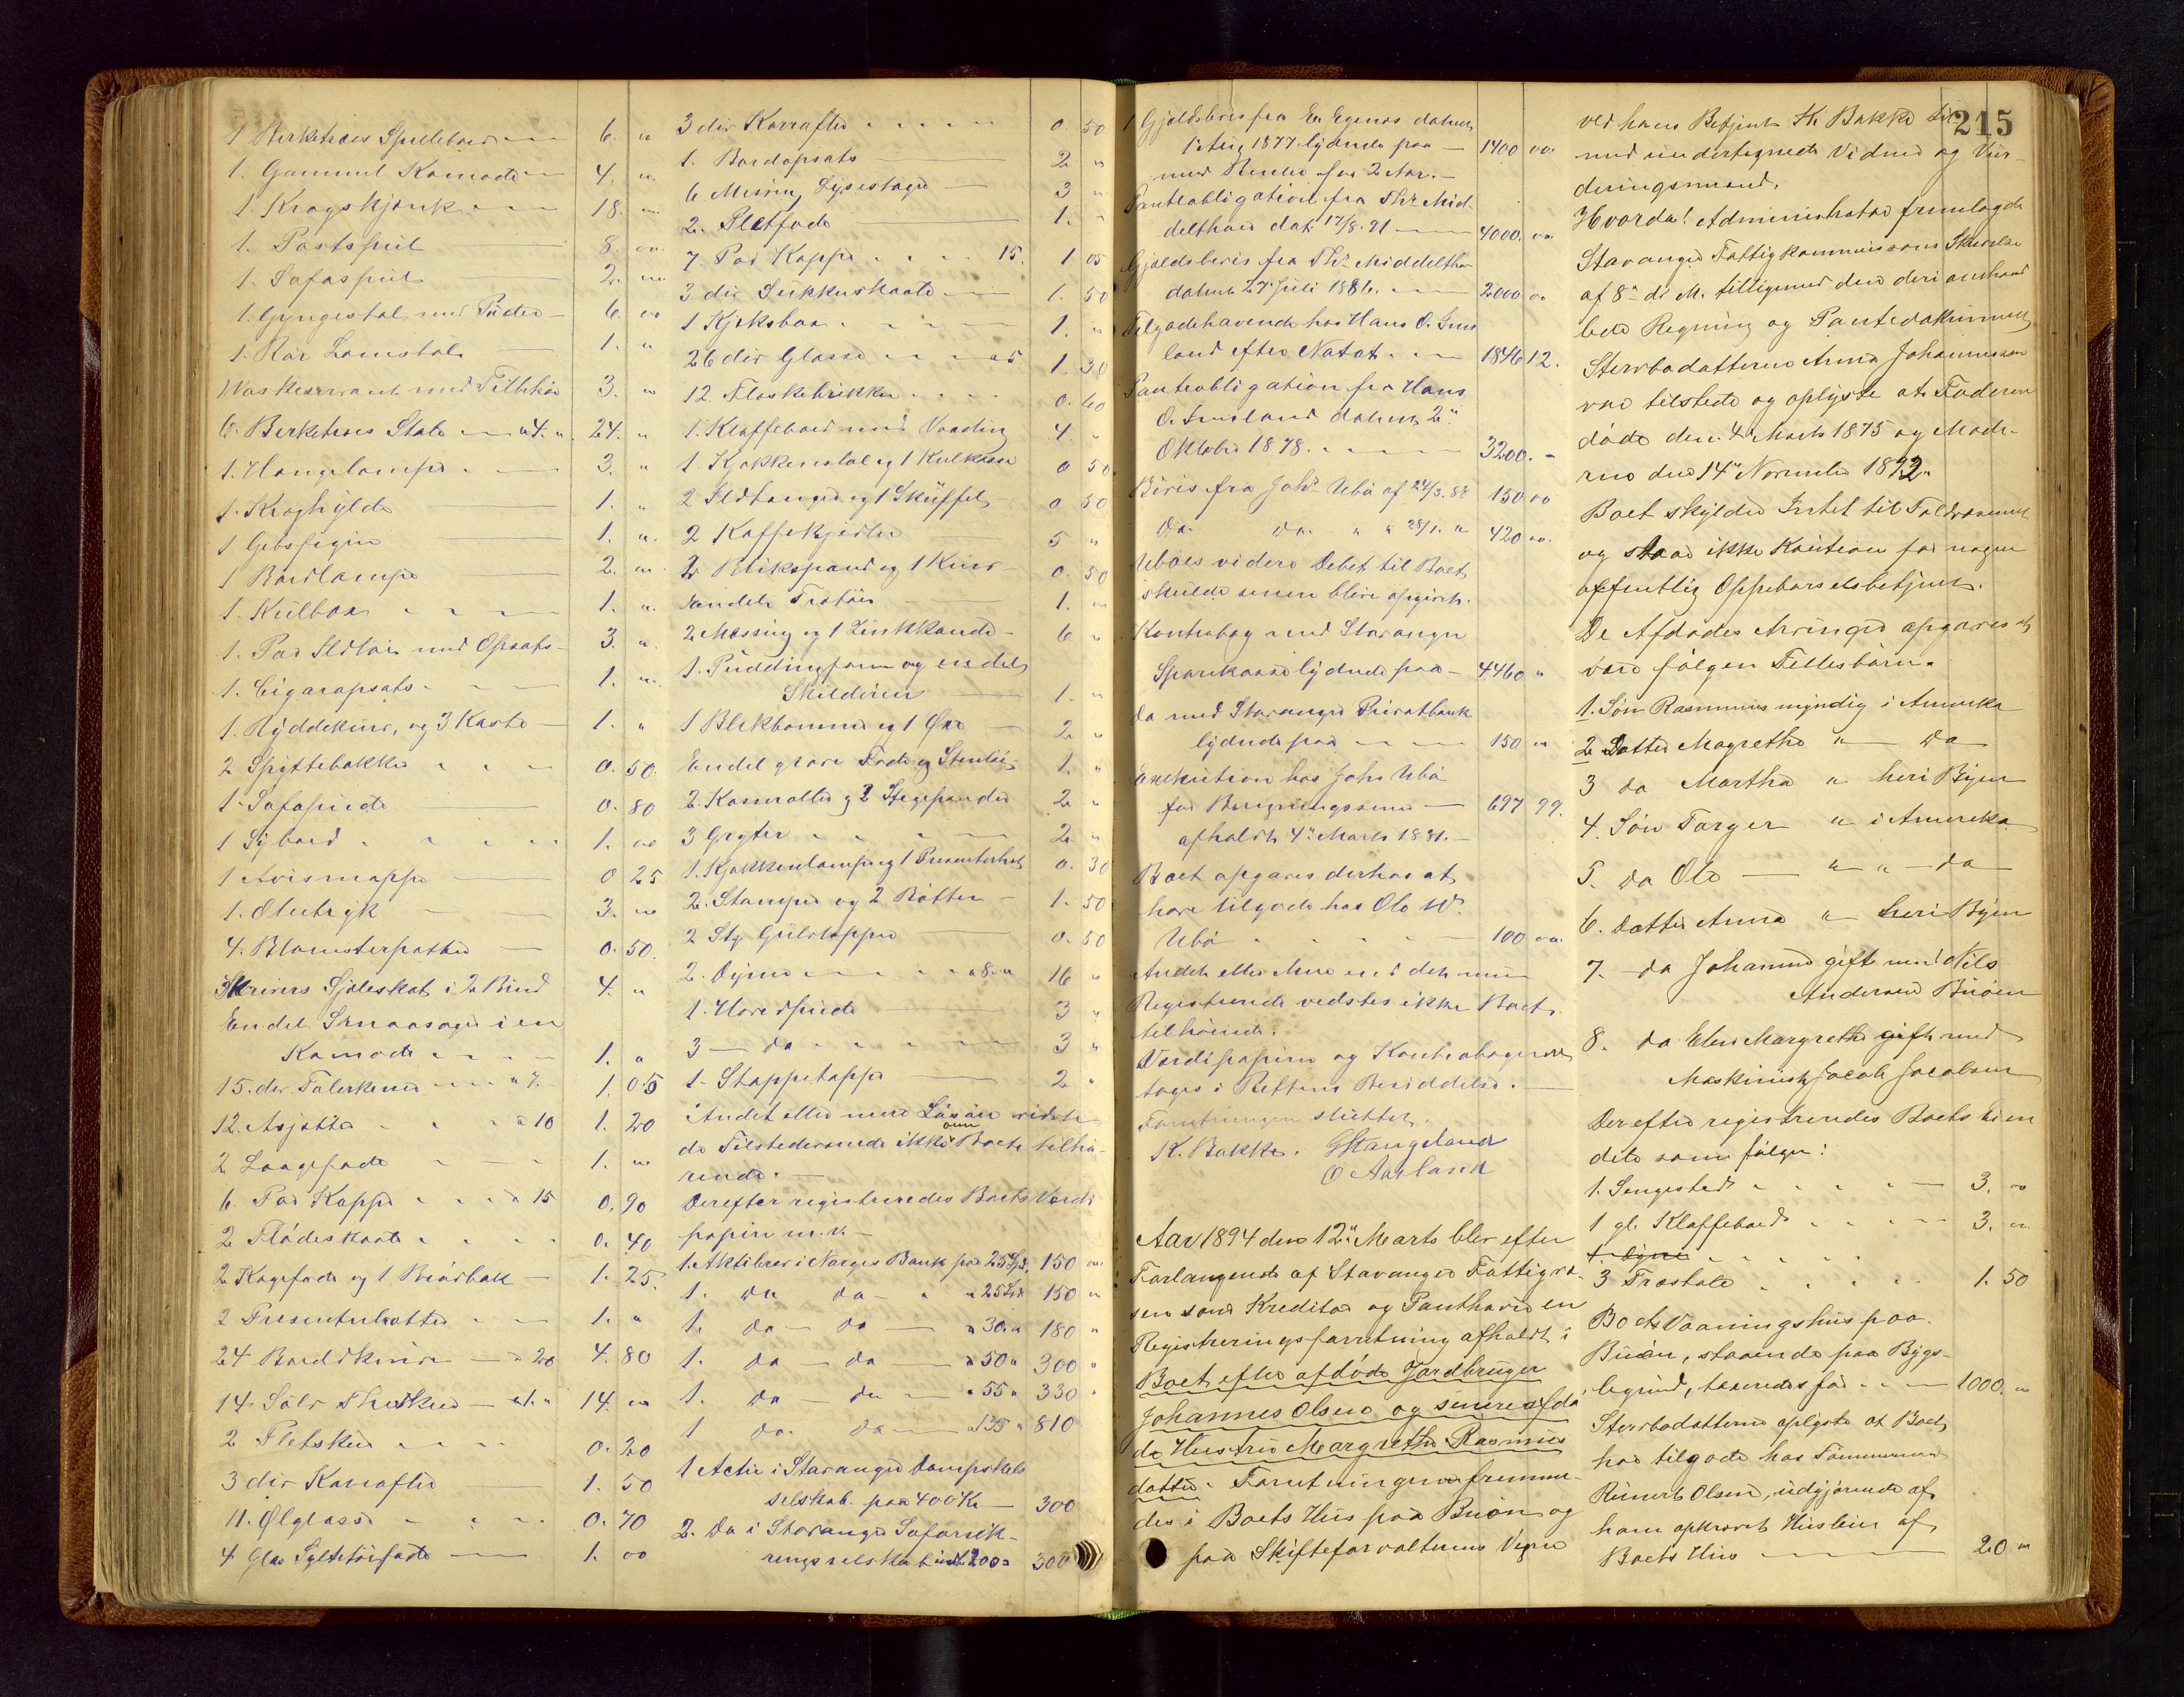 1 Berketræes Spillebord — 6. "
1. Gammel Komode — 4. "
1. Kragskjænk — 18. "
1. Portspeil — 8. "
1. Sofaspeil — 2. "
1. Gyngestol med Puder — 6. "
1. Rør Lænstol — 1. "
Vaskeservant med Tilbehør 3. "
6. Berketræes Stole — a 4. " 24. "
1. Hængelampe — 3. "
1. Kroghylde — 1. "
1 Gibsfigur — 1. "
1 Bordlampe — 2. "
1. Kulbox — 1. "
1. Par Ildtøi med Opsats — 3. "
1. Cigaropsats — 1. "
1. Ryddekurv, og 3 Koste — 1. "
2 Spyttebakker — 0. 50.
1 Sofapude — 0. 80
1 Sybord — 1. 00
1 Avismappe — 0 25
1. Olietryk — 3. "
4. Blomsterpotter — 0. 50.
Skrivers Sjæleskat i 2 Bind 4. "
Endel Smaasager i en
Komode — 1. "
15. div Talerkener — a 7. 1. 05
12. Asjetter — a 10 1. 20
2 Laagefade — 1. "
6. Par Kopper — a 15 0. 90
2 Flødeskaale — 0. 40
2 Kagefade og 1 Brødbak — 1. 25.
2 Presenterbretter — 1. "
24 Bordknive — a 20 4. 80
14. Sølv Theskeer — a 1. " 14. "
2 Pletskeer — 0. 20
3 div Karafler — 1. 50
11. Ølglasse — 0. 70
4 Glas Syltetøifade — 1. 00
3 div Karafler — 0. 50
1. Bordopsats — 2 "
6 Messing Lysestager — 3 "
2. Pletfade — 1. "
7. Par Kopper — 15. 1. 05
3 div Sukkerskaale — 1. 50
1 Kjæksbox — 1. "
26 div Glasse — a 5 1. 30
12 Flaskebrikker — 0. 60
1. Klaffebord med Voxdug 4. "
1. Kjøkkenstol og 1 Kulkasse 0 50.
2 Ildtænger og 1 Skuffel 0 50
2 Kaffekjedler 5 "
2 Blikspand og 1 Kurv — 0. 50
Endel Trætøi — 1. "
2 Messing og 1 Zinkkande — 6 "
1. Puddingform og endel
Skilderier — 1. "
1 Blekbomme og 1 Øxe — 2 "
Endel grove Fade og Stentøi 1. "
2. Kasseroller og 2 Stegepander 2 "
3 Gryter — 2. "
1. Kjøkkenlampe og 1 Presenterbret 0. 30
2. Stamper og 2 Bøtter — 1. 50
2 Stg Gulvtepper — 0. 50
2. Dyner — a 8. " 16 "
1. Hovedpude — 3 "
3 — da — 3 "
1. Stoppetæppe — 2 "
Andet eller mere Løsøre vidste
de Tilstedeværende ikke om Boets tilhø-
rende. —
Derefter registreredes Boets Værdi
papirer m. v. —
1. Aktibrev i Norges Bank paa 25 Spd. 150 "
1. da da — " 25 Spd 150 "
1. da — da — a 30. " 180 "
1. da — da — a 50 " 300 "
1. da — da — " 55 " 330 "
1 da. da — a 135 " 810
1 Actie i Stavanger Dampskibs
selskab. paa 400 Kr — 300
2. Da i Stavanger Søforsik-
ringsselskab a 200 " 300
1 Gjældsbrev fra En Egenæs dateret
1. Aug 1877 lydende paa — 1400 00.
med Renter for 2 Aar. —
Panteobligation fra Thr Mid
delthon dat. 17/8. 91 — 4000. 00.
Gjældsbevis fra Thr Middelthon
dateret 27 Juli 1886. — 2000 00
Tilgodehavende hos Hans O. Ims
land efter Notat — 1846 12.
Panteobligation fra Hans
O. Imsland dateret 2"
Oktober 1878. — 3200. —
Bevis fra Johs Ubø af 24/3. 88 150 00
Da. da. " " 28/1. " 420 00.
Ubøes videre Debet til Boet
skulde senere blive opgivet.
Kontrabog med Stavanger
Sparekasse lydende paa — 4460 "
Da med Stavanger Privatbank
lydende paa — 150 "
Exekution hos Johs Ubø
for Beregningssum — 697 99.
afholdt 4" Marts 1881. —
Boet opgaves derhos at
have tilgode hos Ole W.
Ubø — 100 00.
Andet eller mere end det nu
Registrerede vidstes ikke Boet
tilhørende.
Værdipapirer og Kontrabøger
toges i Rettens Besiddelse. —
Forretningen sluttet.
K. Bakke. G Stangeland
O Aarland
Aar 1894 den 12" Marts blev efter
Forlangende af Stavanger Fattigvæ-
sen som Kreditor og Panthaver en
Registreringsforretning afholdt i
Boet efter afdøde Jordbruger
Johannes Olsen og senere afdø
de Hustru Margrethe Rasmus
datter. Forretningen fremme-
des i Boets Hus paa Buøen og
paa Skifteforvalterens Vegne
215
ved hans Betjent K. Bakke til
med undertegnede Vidner og Vur-
deringsmænd.
Hvorda! Administrator fremlagde
Stavanger Fattigkommissions Skrivelse
af 8" ds M. tilligemed den deri omhand
lede Regning og Pantedokument
Stervbodatteren Anna Johannessen
var tilstede og oplyste at Faderen
døde den 4. Marts 1875 og Mode-
ren den 14" November 1892.
Boet skylder Intet til Toldvæsenet
og staar ikke Kaution for nogen
offentlig Oppebørselsbetjent.
De Afdødes Arvinger opgaves at
være følgen Fællesbørn.
1. Søn Rasmus myndig i Amerika
2 Datter Magrethe " — da
3 da Martha " heri Byen
4. Søn Torger " i Amerika
5. da Ole — " " — da
6. Datter Anna " heri Byen
7. — da Johanne gift med Nils
Andersen Buøen
8. da Elen Margrethe gift med
Maskinist Jacob Jacobsen
Derefter registreredes Boets Eien
dele som følger:
1. Sengested — 3. 00
1 gl. Klaffebord — 3. "
1. Dyne
3 Træstole 1. 50
Boets Vaaningshus paa
Buøen, staaende paa Bygs-
legrund, taxeredes for — 1000. "
Stervbodatteren oplyste at Boet
har tilgode hos Tømmermand
Reinert Olsen, udgjørende af
ham opkrævet Husleie af
Boets Hus — 20 "